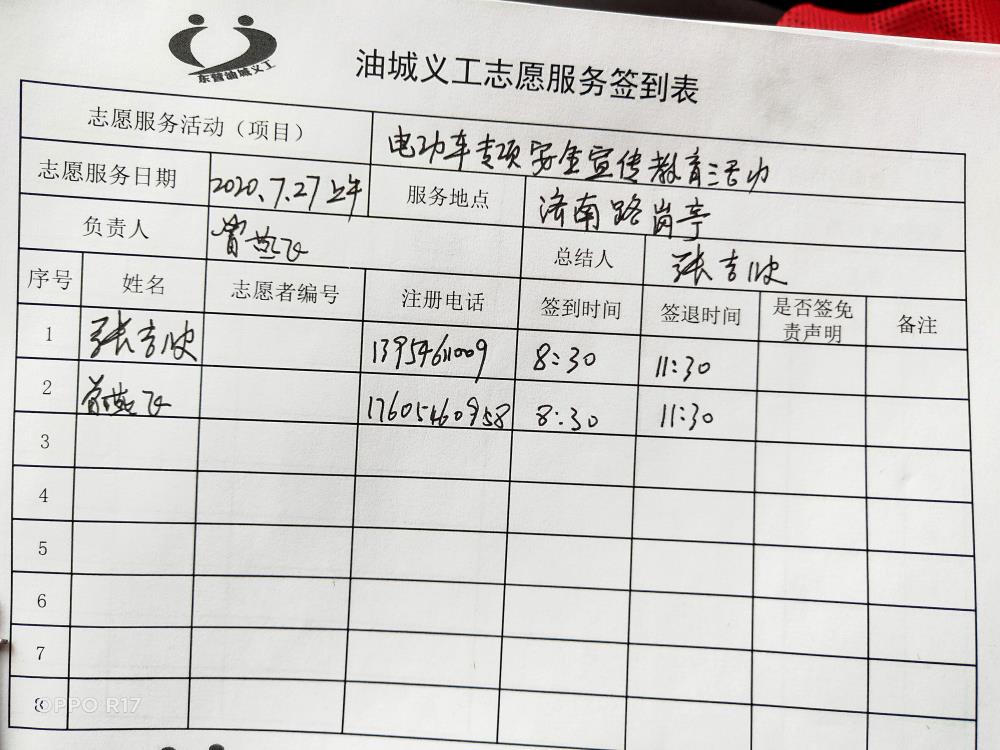 东营油城义工
油城义工志愿服务签到表
志愿服务活动（项目） 电动车专项安全宣传教育活动
志愿服务日期 2020.7.27上午 服务地点 济南路岗亭
负责人 燕飞 总结人 张吉欣
序号 姓名 志愿者编号 注册电话 签到时间 签退时间 是否签免责声明 备注
1 张吉欣 13954611009 8:30 11:30
2 燕飞 17605460958 8:30 11:30
3
4
5
6
7
8
OPPO R17